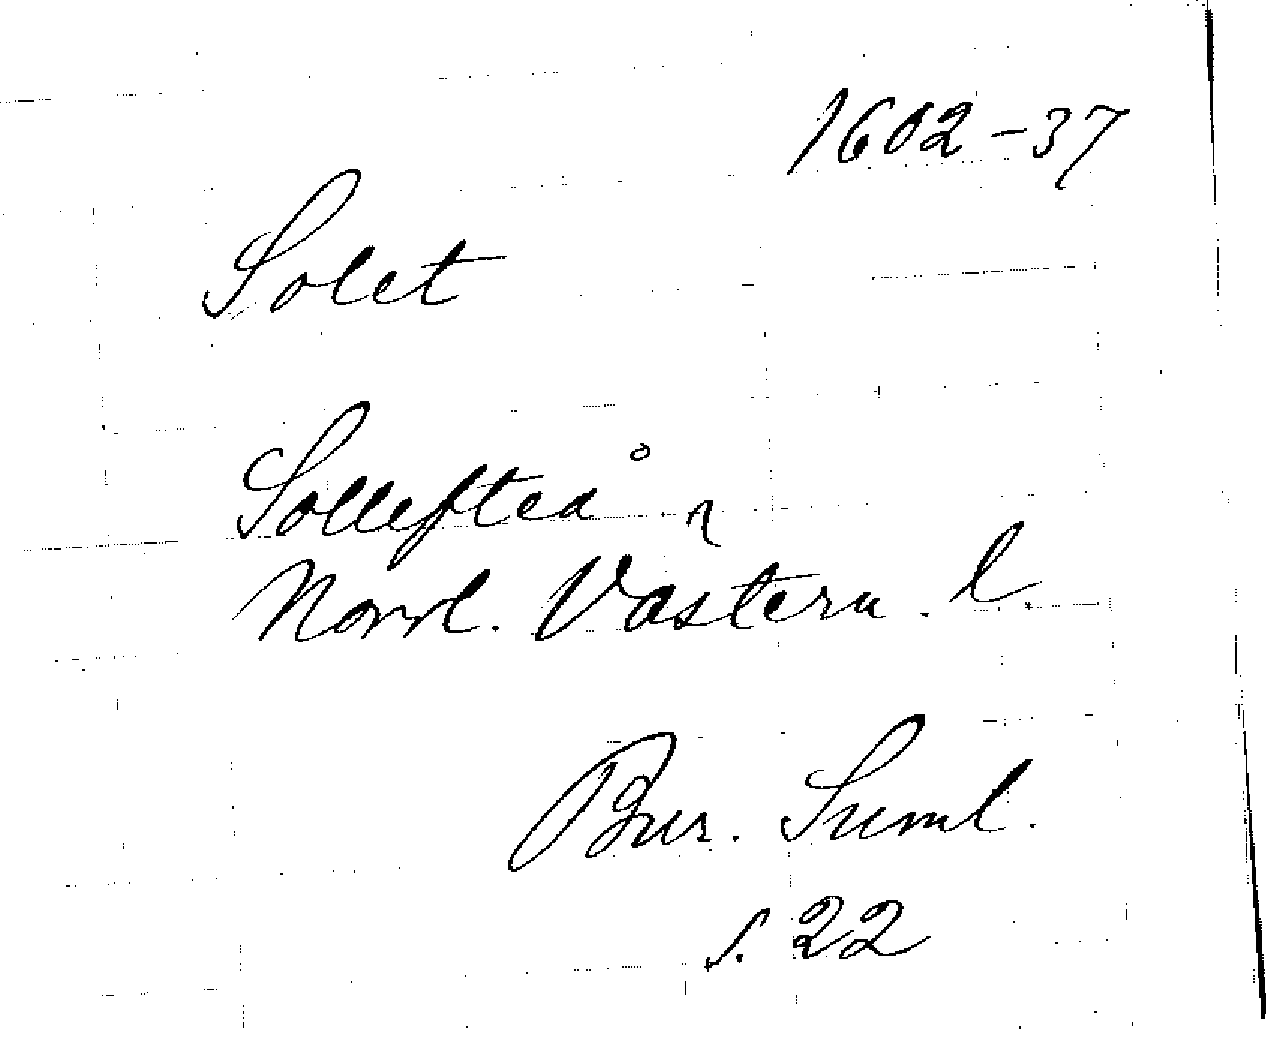 1602-37
Solet
Sollefteå
Nordl. Västern. l.
Bur. Suml.
s. 22